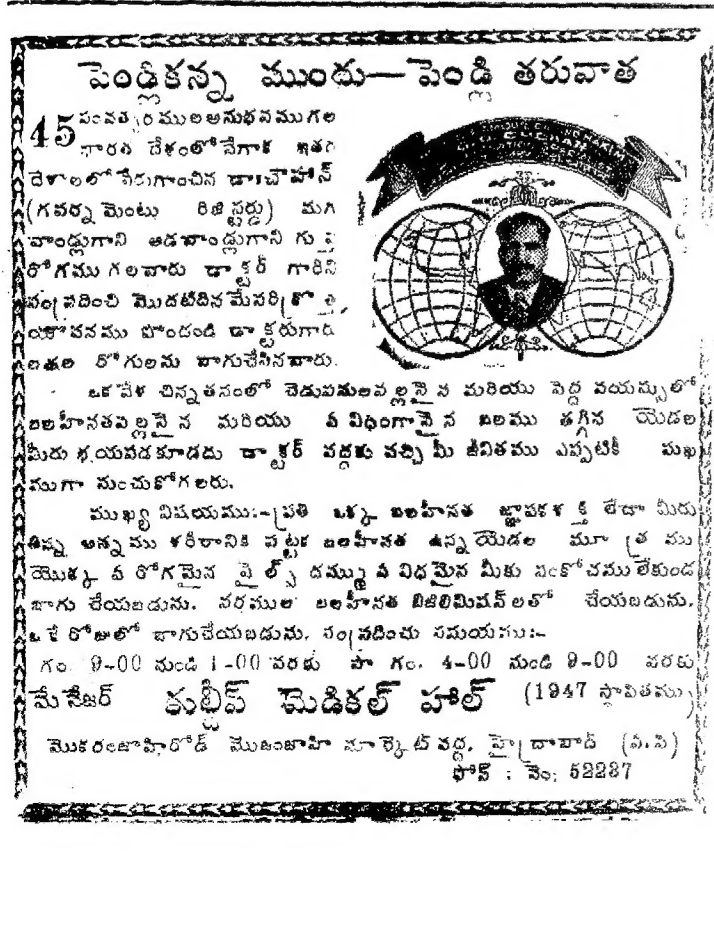 పెండ్లికన్న ముందు—పెండ్లి తరువాత
45 సంవత్సరముల అనుభవముగల
భారత దేశంలోనేగాక ఇతర
దేశాలలో పేరుగాంచిన డా॥చౌహాన్
(గవర్నమెంటు రిజిస్టర్డు) మగ
వాండ్లుగాని ఆడవాండ్లుగాని గుప్త
రోగము గలవారు డాక్టర్ గారిని
సంప్రదించి మొదటిదినమేసరిక్రొత్త
యౌవనము పొందండి డాక్టరుగారు
రోగులను బాగుచేసినవారు.
ఒకవేళ చిన్నతనంలో చెడుపనులవల్లనైన మరియు పెద్ద వయస్సులో
బలహీనతవల్లనైన మరియు ఏ విధంగానైన బలము తగ్గిన యెడల
మీరు భయపడకూడదు డాక్టర్ వద్దకు వచ్చి మీ జీవితము ఎప్పటికీ సుఖ
ముగా నుంచుకోగలరు.
ముఖ్య విషయము:-ప్రతి ఒక్క బలహీనత జ్ఞాపకశక్తి లేదా మీరు
తిన్న అన్నము శరీరానికి పట్టక బలహీనత ఉన్నయెడల మూత్రము
యొక్క ఏ రోగమైన పైల్స్ దమ్ము ఏ విధమైన మీకు సంకోచము లేకుండ
బాగు చేయబడును. నరముల బలహీనత చేయబడును.
ఒకే రోజులో బాగుచేయబడును. సంప్రదించు సమయము:-
గం. 9-00 నుండి 1-00 వరకు సా గం. 4-00 నుండి 9-00 వరకు
మేనేజర్ కుల్దీప్ మెడికల్ హాల్ (1947 స్థాపితము)
మొకరంజాహిరోడ్ మొజంజాహి మార్కెట్ వద్ద, హైద్రాబాద్ (ఏ.పి)
ఫోన్ : నెం: 52287